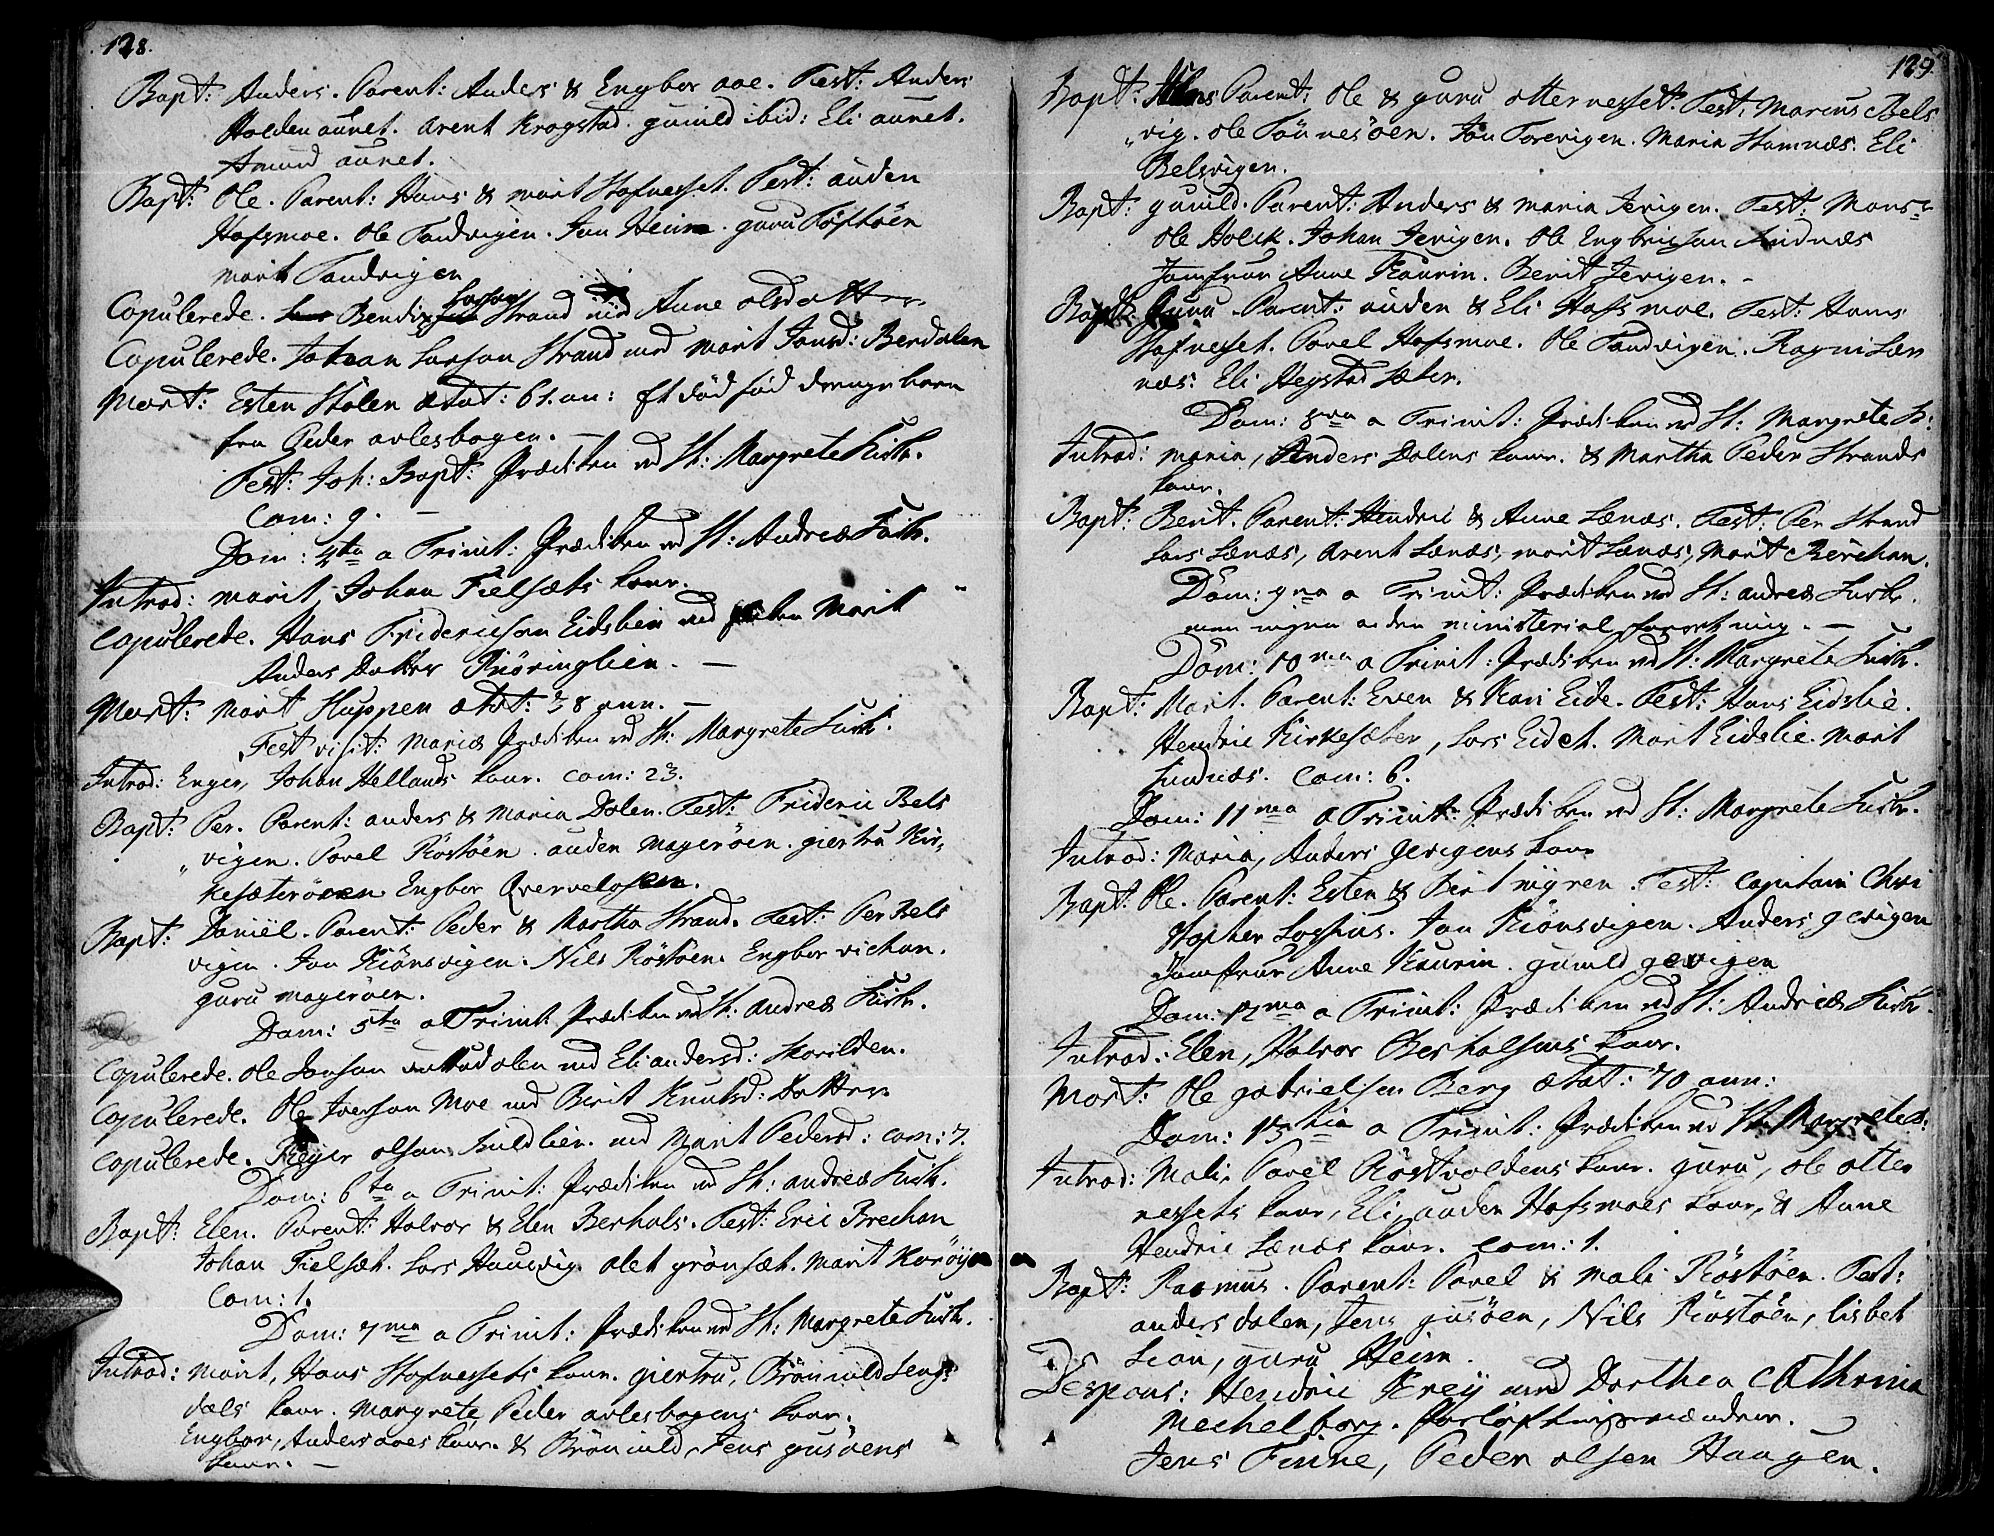 128.
Bapt: Anders. Parent: Anders & Engbor aae. Test: Anders
Holden aunet. Arent Krogstad. gunild ibid: Eli aunet.
Amund aunet.
Bapt: Ole. Parent: Hans & marit Hofnesset. Test: auden
Hofsmoe. Ole Tandvigen. Jon Heim. guru Röstöen
marit Tandvigen
Copulerede. Bendix Larson Strand med Anne olsdatter
Copulerede. Johan Larson Strand med Marit Jonsd: Berdalen
Mort: Esten Stolen ætat: 61. an: Et död föd drengebarn
fra Peder avlesbogen. —
Fest: Joh: Bapt: Prædiken ved St: Margrete Kirk.
Com: 9. —
Dom: 4ta a Trinit: Prædiken ved St: Andreæ Kirk.
Introd: marit Johan Fielsæts kone.
Copulerede. Hans Fridericson Eidslien med Marit
Anders Datter Kiöringlien. —
Mort: Marit Huppen ætat: 38 ann. —
Fest visit: Mariæ Prædiken ved St: Margrete Kirk.
Introd: Enger, Johan Hellands kone. Com: 23.
Bapt: Per. Parent: anders & Maria Dolen. Test: Frideric Bels
vigen. Povel Röstöen. auden Mageröen. giertru Kir,
kesæteröen Engbor Qvernelosen.
Bapt: Daniël. Parent: Peder & Martha Strand. Test: Per Bels
vigen. Jon Kiönsvigen. Nils Röstöen. Engbor vichan.
guru mageröen.
Dom: 5ta a Trinit: Prædiken ved St: andreæ Kirk.
Copulerede. Ole Jonson med Eli andersd: Skarilden.
Copulerede. Ole Iverson Moe med Birit Knutsd: Datter
Copulerede. olson Kuldlien med Marit Pedersd: Com: 7.
Dom: 6ta a Trinit: Prædiken ved St: andreæ Kirk.
Bapt: Elen. Parent: Halvor & Elen Berhols. Test: Eric Brechan
Johan Fielsæt. Lars Hausvig. Olet grönsæt. Marit Koröyen
Com: 1.
Dom: 7ma a Trinit: Prædiken ved St: Margrete Kirk.
Introd: Marit, Hans Hofnessets kone. giertru, Brönild Leng:
dals kone. Margrete, Peder avlesbogens kone.
Engbor, Anders aaes kone. & Brönild Jens gusöens
kone. —
129.
Bapt: Parent: Ole & guru otternesset. Test: Marcus Bels
vig. Ole Tönnesöen. Jon Torvigen. Maria Hamnæs. Eli
Belsvigen.
Bapt: gunild. Parent: Anders & Maria Jevigen. Test: Mons:r
Ole Holck. Johan Jevigen. Ole Engbricson Kindnæs
Jomfrue Anne Kaurin. Berit Jevigen. –
Bapt: Guru. Parent: auden & Eli Hofsmoe. Test: Hans
Hofnesset. Povel Hofsmoe. Ole Tandvigen. Ragni Læn
næs: Eli Hegstad sæter.
Dom: 8va a Trinit: Prædiken ved St: Margrete K:
Introd: Maria, Anders Dolens kone. & Martha Peder Strands
kone.
Bapt: Berit. Parent: Hendric & Anne Lænæs. Test: Per Strand
Lars Lænæs, Arent Lænæs, marit Lænæs, Marit Berchan.
Dom: 9na a Trinit: Prædiken ved St: andreæ Kirk.
men ingen anden ministerial forretning. —
Dom: 10ma a Trinit: Prædiken ved St: Margrete Kirk.
Bapt: Marit. Parent: Even & Kari Eide. Test: Hans Eidslie.
Hendric Kirkesæter, Lars Eidet. Marit Eidslie. Marit
Kindnæs. Com: 6.
Dom: 11ma a Trinit: Prædiken ved St: Margrete Kirk.
Introd: Maria, Anders Gevigens kone
Bapt: Ole. Parent: Esten & Birit nyren. Test: Capitain Chri
stopher Lossius. Jon Kiönsvigen. Anders gevigen
Jomfrue Anne Kaurin. gunild gevigen
Dom: 12ma a Trinit: Prædiken ved St: Andreæ Kirk.
Introd: Elen, Halvor Berholsens kone.
Mort: Ole gabrielsen Berg ætat: 70 ann:
Dom: 13tia a Trinit: Prædiken ved St: Margrete K:
Introd: Mali, Povel Röstvoldens kone. guru, Ole otter
nessets kone, Eli, auden Hofsmoes kone, & Anne
Hendric Lænæs kone. Com: 1.
Bapt: Rasmus. Parent: Povel & Mali Röstöen. Test:
anders dolen, Jens gusöen, Nils Röstöen, lisbet
Leon, guru Heim.
Despons: Hendric Freij med Dorthea Cathrina
Mechelborg. Forlöftningsmændene.
Jens Finne, Peder olsen Haagen.